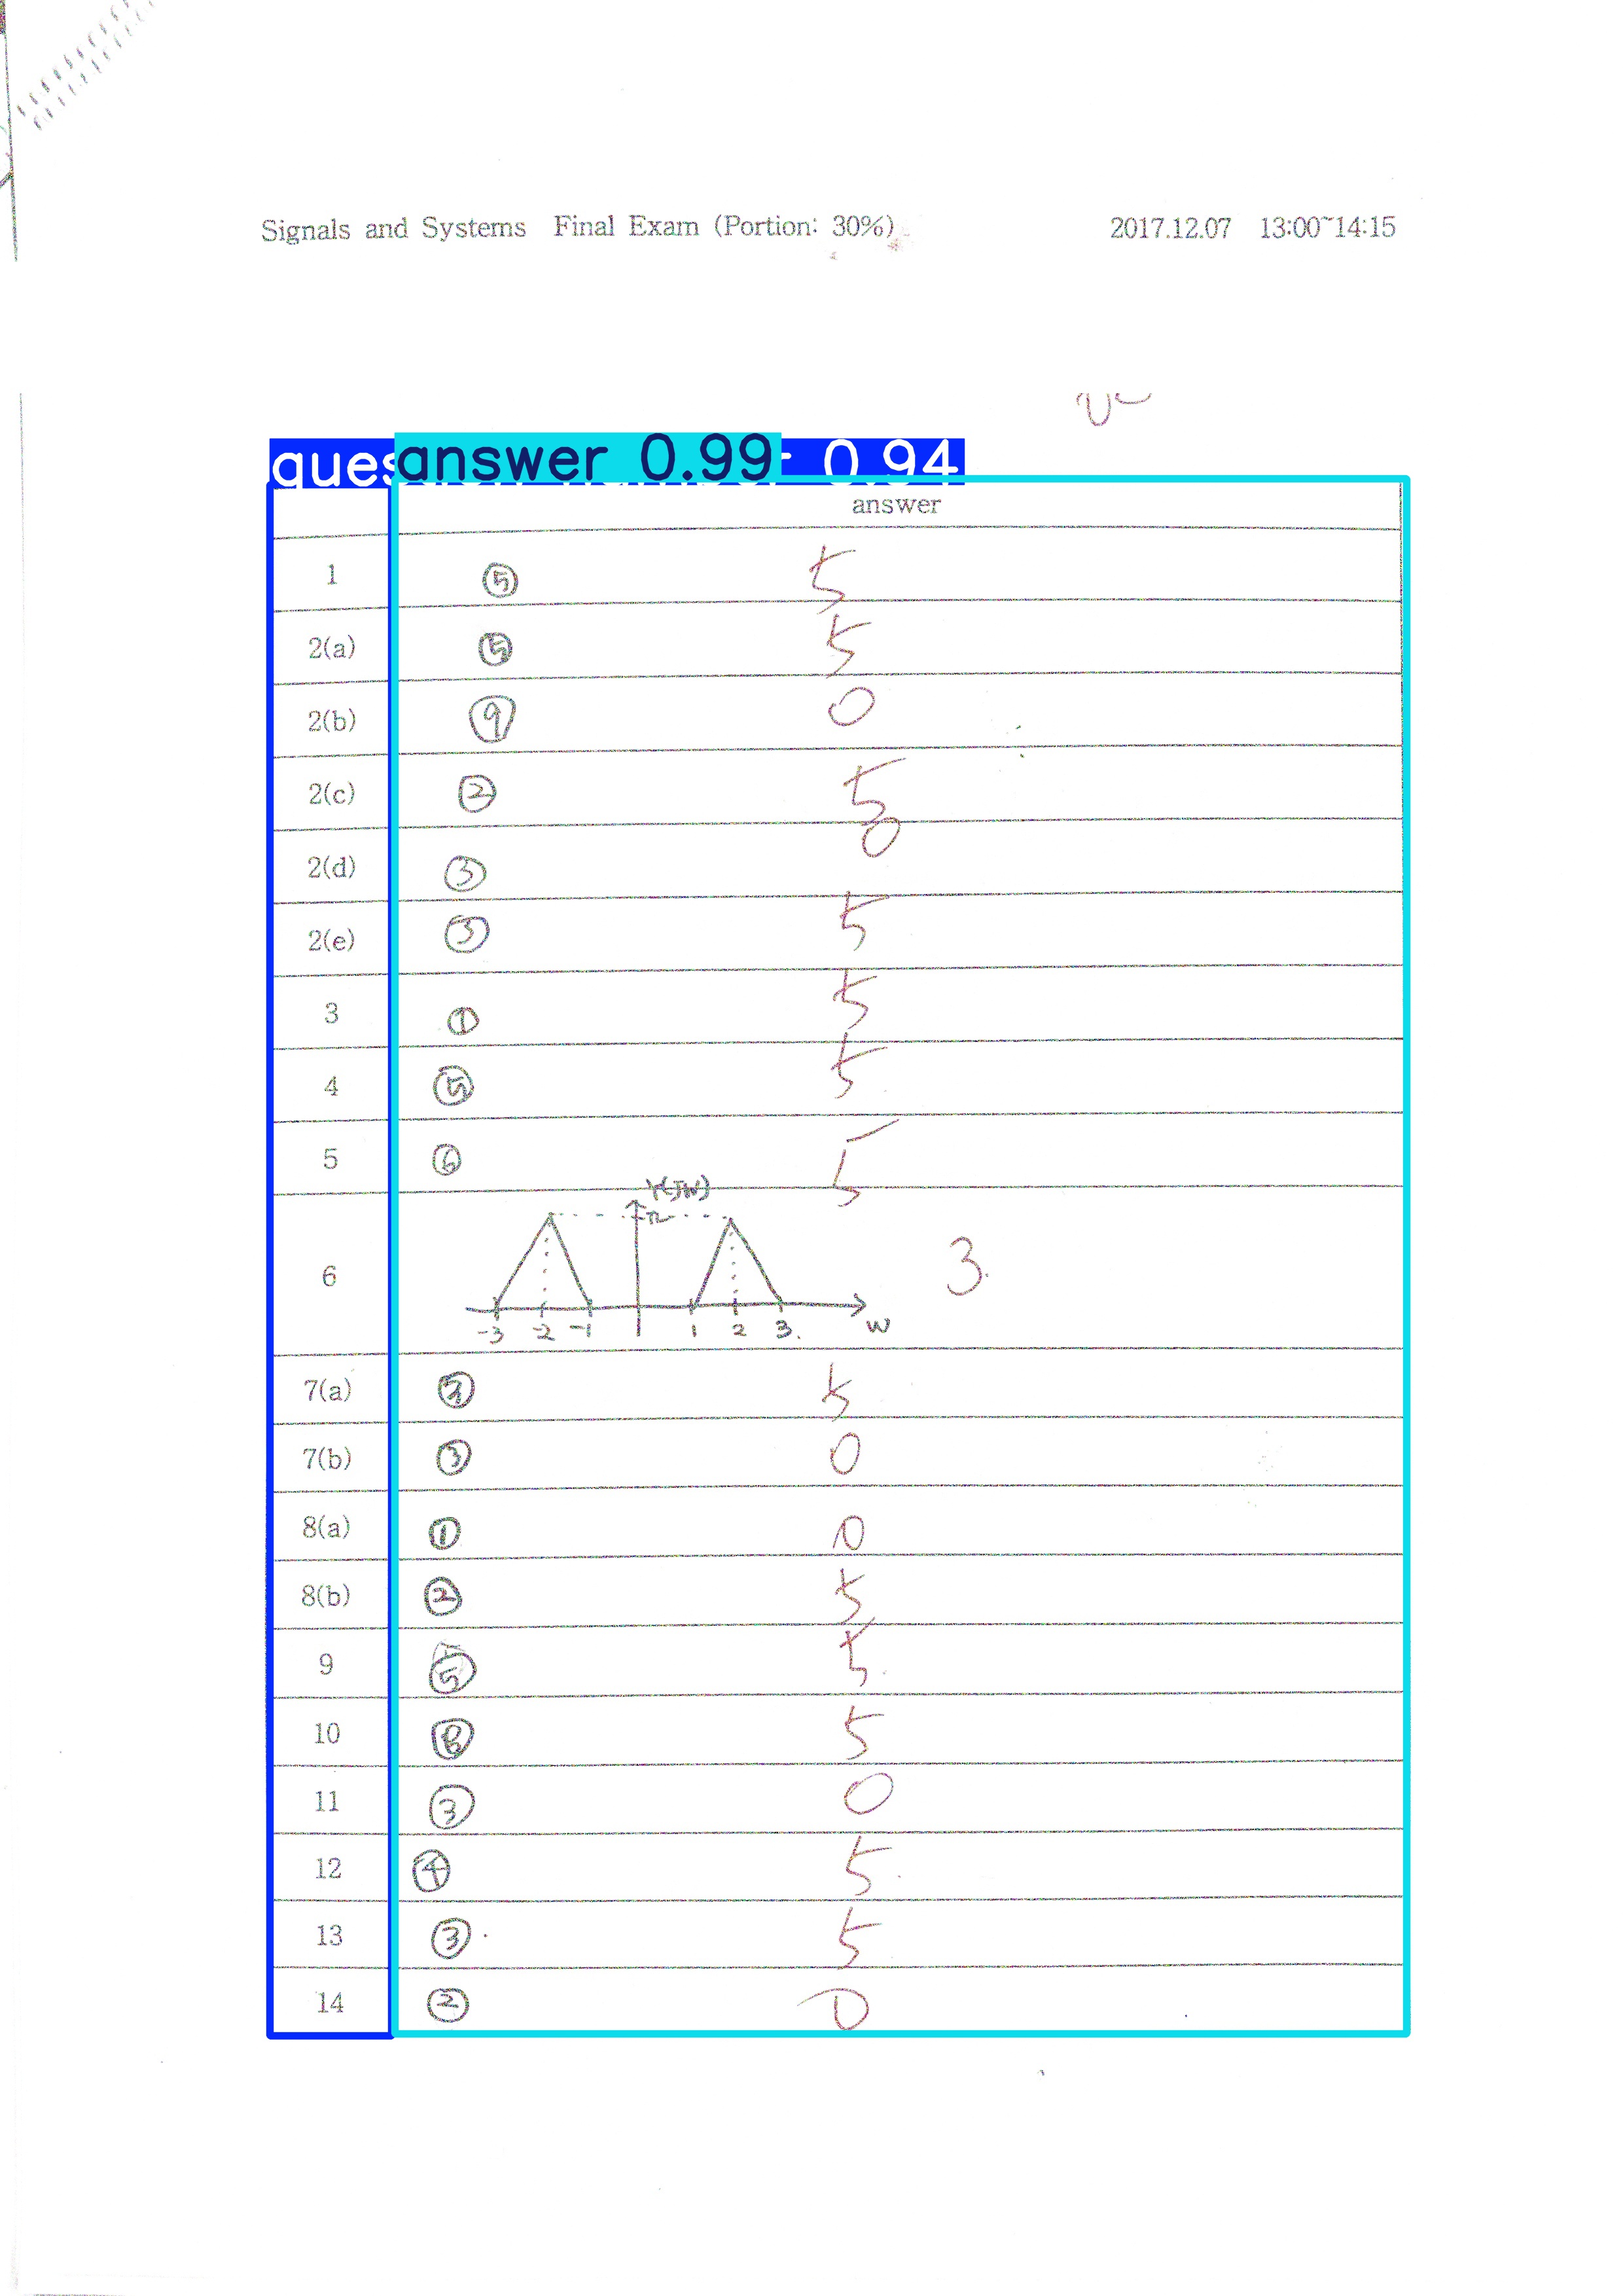 Signals and Systems Final Exam (Portion: 30%) 2017.12.07 13:00~14:15
answer 0.99 0.94
answer
1 ⑤ 5
2(a) ⑤ 5
2(b) ⑨ 0
2(c) ② 5
2(d) ③ 0
2(e) ③ 5
3 ① 5
4 ⑤ 5
5 ⑥ 5
Y(jw)
π
6 3.
-3 -2 -1 1 2 3. w
7(a) 5
7(b) ③ 0
8(a) ① 0
8(b) ② 5
9 ⑤ 5
10 5
11 ③ 0
12 ④ 5
13 ③ 5
14 ② 0